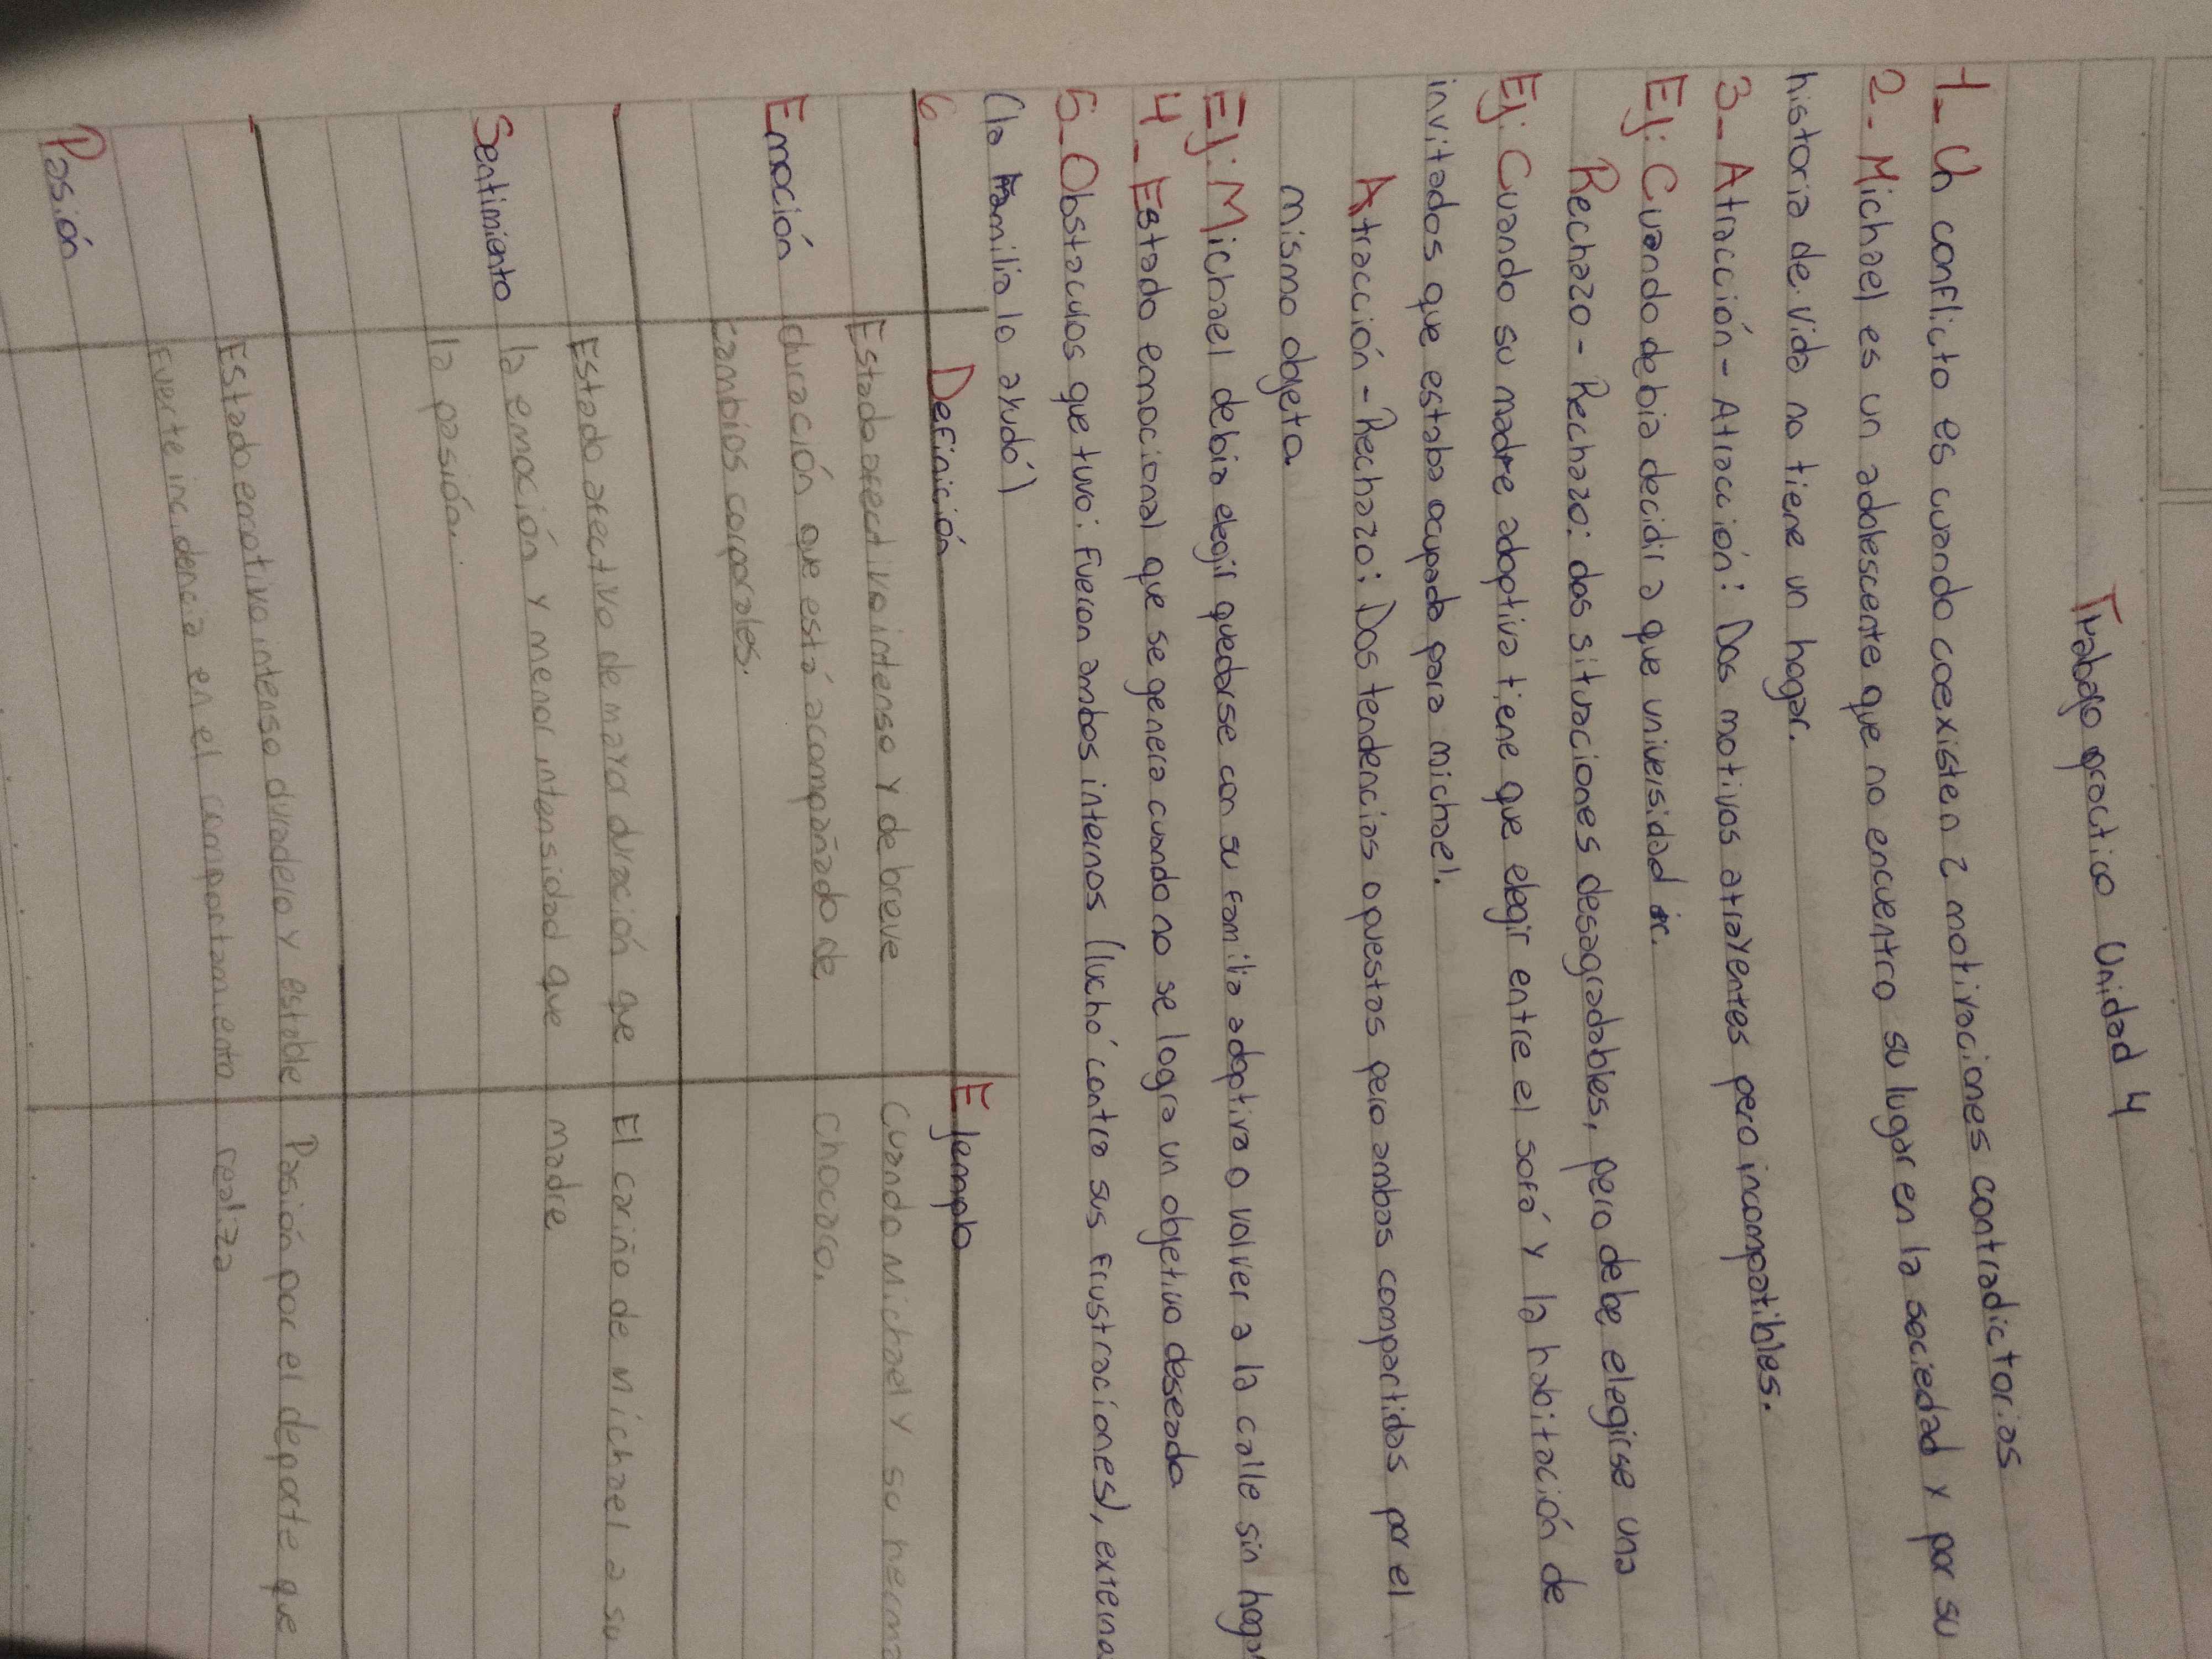 Trabajo practico Unidad 4
1_ Un conflicto es cuando coexisten 2 motivaciones contradictorias
2_ Michael es un adolescente que no encuentra su lugar en la sociedad y por su
historia de vida no tiene un hogar.
3_ Atracción - Atracción: Dos motivos atrayentes pero incompatibles.
Ej: Cuando debia decidir a que universidad ir.
Rechazo - Rechazo: dos situaciones desagradables, pero debe elegirse una
Ej: Cuando su madre adoptiva tiene que elegir entre el sofá y la habitación de
invitados que estaba ocupada para michael.
Atracción - Rechazo: Dos tendencias opuestas pero ambas compartidas por el
mismo objeto.
Ej: Michael debia elegir quedarse con su familia adoptiva o volver a la calle sin hogar
4_ Estado emocional que se genera cuando no se logra un objetivo deseado
5_ Obstaculos que tuvo: Fueron ambos internos (luchó contra sus frustraciones), externo
(la familia lo ayudó)
6 Definición Ejemplo
Estado afectivo intenso y de breve Cuando Michael y su herma
Emoción duración que está acompañado de chocaro.
cambios corporales.
Estado afectivo de mayor duración que El cariño de Michael a su
Sentimiento la emoción y menor intensidad que madre
la pasión.
Estado emotivo intenso duradero y estable Pasión por el deporte que
Fuerte incidencia en el comportamiento realiza
Pasión